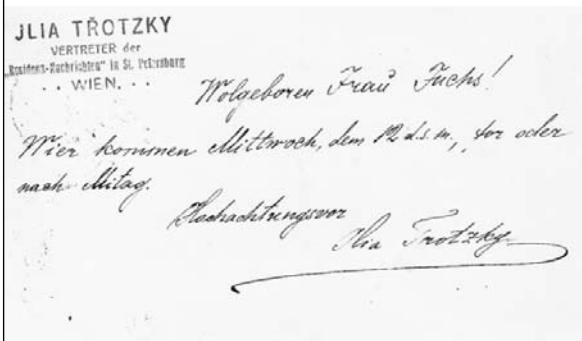 JLIA TROTZKY
VERTRETER der
„Residenz-Nachrichten" in St. Petersburg
. . WIEN. . .
Wolgeboren Frau Fuchs!
Wier kommen Mittwoch, dem 12 d.s.m., for oder
nach Mitag.
Hochachtungsvor
Ilia Trotzky